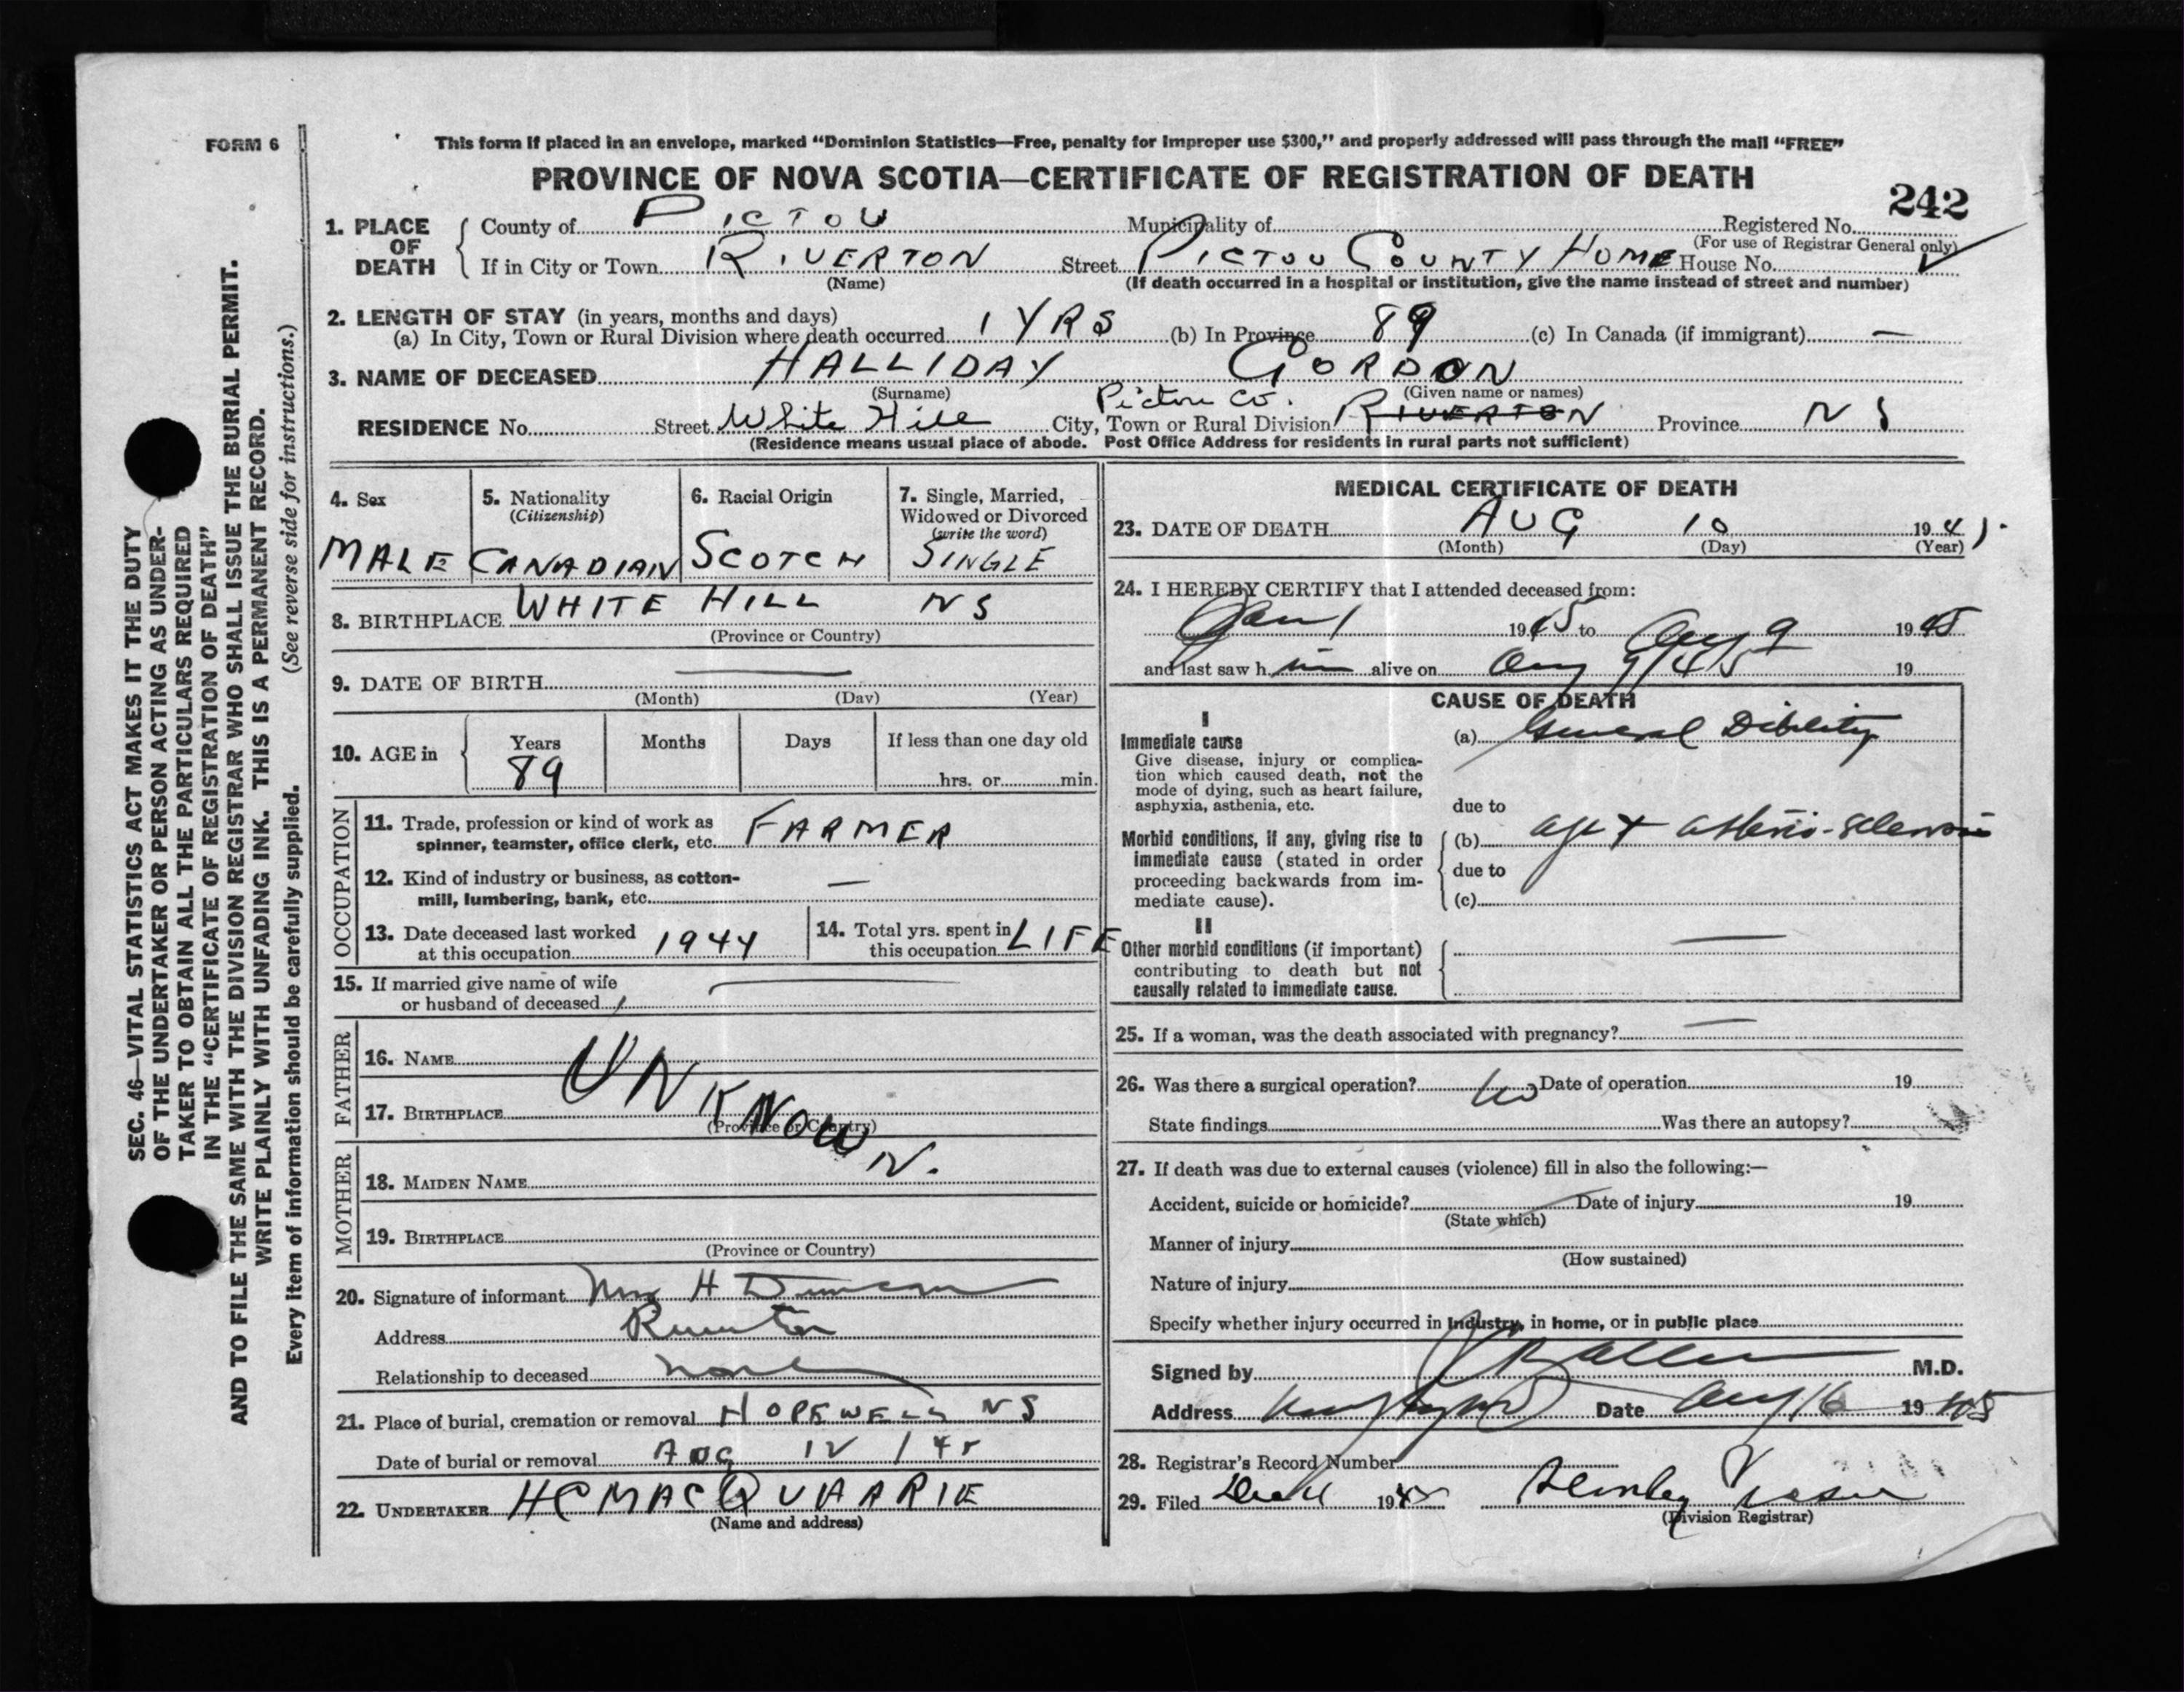 FORM 6
This form if placed in an envelope, marked “Dominion Statistics—Free, penalty for improper use $300,” and properly addressed will pass through the mail “FREE”
PROVINCE OF NOVA SCOTIA—CERTIFICATE OF REGISTRATION OF DEATH
242
1. PLACE OF DEATH
County of PICTOU Municipality of Registered No.
(For use of Registrar General only)
If in City or Town RIVERTON Street PICTOU COUNTY HOME House No.
(Name) (If death occurred in a hospital or institution, give the name instead of street and number)
2. LENGTH OF STAY (in years, months and days)
(a) In City, Town or Rural Division where death occurred 1 YRS (b) In Province 89 (c) In Canada (if immigrant) —
3. NAME OF DECEASED HALLIDAY GORDON
(Surname) (Given name or names)
Pictou Co.
RESIDENCE No. Street White Hill City, Town or Rural Division RIVERTON Province N S
(Residence means usual place of abode. Post Office Address for residents in rural parts not sufficient)
4. Sex
MALE
5. Nationality
(Citizenship)
CANADIAN
6. Racial Origin
SCOTCH
7. Single, Married,
Widowed or Divorced
(write the word)
SINGLE
8. BIRTHPLACE WHITE HILL N S
(Province or Country)
9. DATE OF BIRTH —
(Month) (Day) (Year)
10. AGE in
Years Months Days If less than one day old
89 hrs. or min.
OCCUPATION
11. Trade, profession or kind of work as
spinner, teamster, office clerk, etc. FARMER
12. Kind of industry or business, as cotton-
mill, lumbering, bank, etc. —
13. Date deceased last worked
at this occupation 1944
14. Total yrs. spent in
this occupation LIFE
15. If married give name of wife
or husband of deceased —
FATHER
16. NAME
17. BIRTHPLACE
(Province or Country)
UNKNOWN.
MOTHER
18. MAIDEN NAME
19. BIRTHPLACE
(Province or Country)
20. Signature of informant Mrs H Duncan
Address Riverton
Relationship to deceased None
21. Place of burial, cremation or removal HOPEWELL N S
Date of burial or removal AUG 12 / 45
22. UNDERTAKER H C MACQUARRIE
(Name and address)
MEDICAL CERTIFICATE OF DEATH
23. DATE OF DEATH AUG 10 194
(Month) (Day) (Year)
24. I HEREBY CERTIFY that I attended deceased from:
Jan 1 1945 to Aug 9 1945
and last saw h im alive on Aug 9/45 19
CAUSE OF DEATH
I
Immediate cause
Give disease, injury or complica-
tion which caused death, not the
mode of dying, such as heart failure,
asphyxia, asthenia, etc.
(a) General Dibility
due to
Morbid conditions, if any, giving rise to
immediate cause (stated in order
proceeding backwards from im-
mediate cause).
(b) age +
due to
(c)
II
Other morbid conditions (if important)
contributing to death but not
causally related to immediate cause.
—
25. If a woman, was the death associated with pregnancy? —
26. Was there a surgical operation? No Date of operation 19
State findings Was there an autopsy?
27. If death was due to external causes (violence) fill in also the following:—
Accident, suicide or homicide? Date of injury 19
(State which)
Manner of injury
(How sustained)
Nature of injury
Specify whether injury occurred in Industry, in home, or in public place
Signed by M.D.
Address Date Aug 16 1945
28. Registrar's Record Number
29. Filed 1945 Stanley Fraser
(Division Registrar)
SEC. 46—VITAL STATISTICS ACT MAKES IT THE DUTY
OF THE UNDERTAKER OR PERSON ACTING AS UNDER-
TAKER TO OBTAIN ALL THE PARTICULARS REQUIRED
IN THE “CERTIFICATE OF REGISTRATION OF DEATH”
AND TO FILE THE SAME WITH THE DIVISION REGISTRAR WHO SHALL ISSUE THE BURIAL PERMIT.
WRITE PLAINLY WITH UNFADING INK. THIS IS A PERMANENT RECORD.
Every item of information should be carefully supplied. (See reverse side for instructions.)